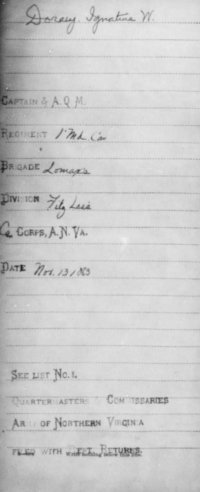 Dorsey, Ignatius W.
CAPTAIN & A. Q. M.
REGIMENT 1' Md. Ca
BRIGADE Lomax's
DIVISION Fitz Lee's
Ca CORPS, A. N. VA.
DATE Nov. 13, 1863
SEE LIST NO. 1.
QUARTERMASTERS & COMMISSARIES
ARMY OF NORTHERN VIRGINIA
FILED WITH DEPT. RETURNS.